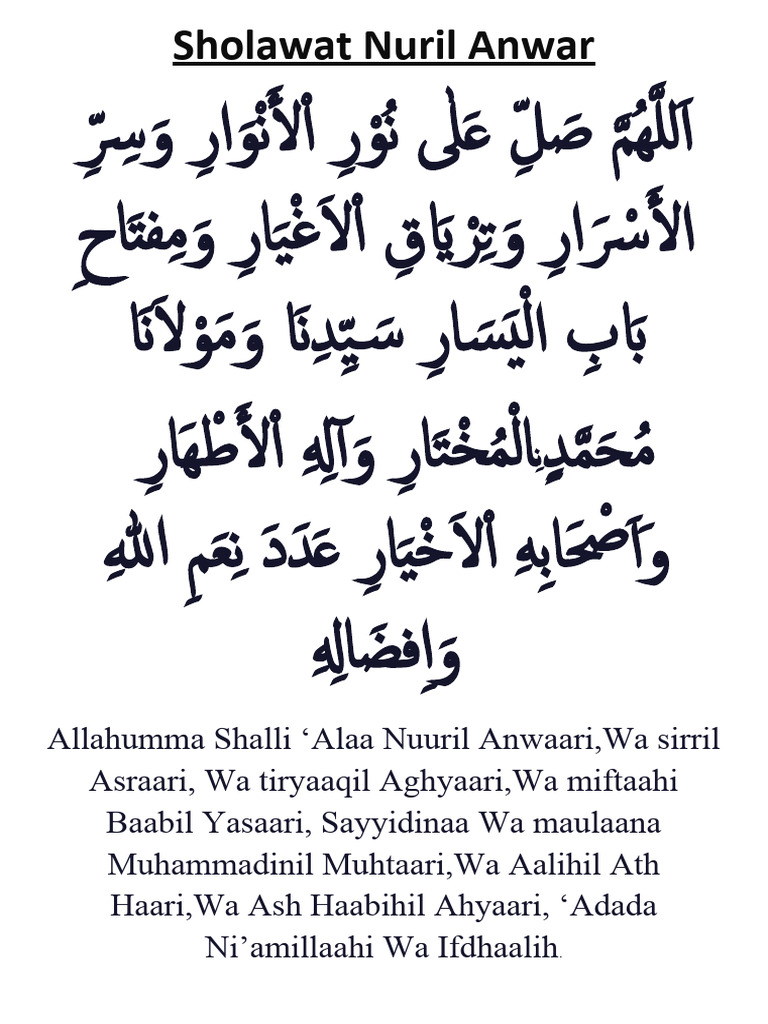 Sholawat Nuril Anwar
اَللّٰهُمَّ صَلِّ عَلٰى نُوْرِ اْلأَنْوَارِ وَسِرِّ
الأَسْرَارِ وَتِرْيَاقِ اْلاَغْيَارِ وَمِفتَاحِ
بَابِ الْيَسَارِ سَيِّدِنَا وَمَوْلاَنَا
مُحَمَّدٍنِالْمُخْتَارِ وَآلِهِ اْلأَطْهَارِ
وَاَصْحَابِهِ اْلاَخْيَارِ عَدَدَ نِعَمِ اللهِ
وَاِفضَالِهِ
Allahumma Shalli ‘Alaa Nuuril Anwaari,Wa sirril
Asraari, Wa tiryaaqil Aghyaari,Wa miftaahi
Baabil Yasaari, Sayyidinaa Wa maulaana
Muhammadinil Muhtaari,Wa Aalihil Ath
Haari,Wa Ash Haabihil Ahyaari, ‘Adada
Ni’amillaahi Wa Ifdhaalih.